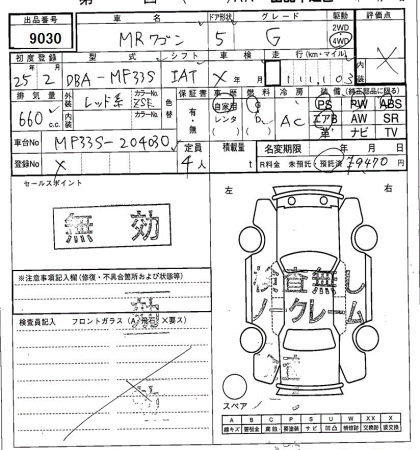 出品番号 車名 ドア形状 グレード 駆動 評価点
9030 MRワゴン 5 G 2WD 4WD X
初度登録 型式 シフト 車検 走行(km・マイル) 内装
25年2月 DBA-MF33S IAT X年 月
排気量 外装 カラーNo. 色替 保証書 車歴 燃料 冷房 装備(純正部品に限る)
660c.c. レッド系 ZSE 有・無 自家用 レンタ G D AC PS PW ABS
内装 カラーNo. エアB AW SR
車台No MF33S-204030 革 ナビ TV
登録No X 定員 4人 積載量 t 名変期限 年 月 日
R料金 未預託 預託済 ¥9470
セールスポイント 左 右
無効
※注意事項記入欄(修復・不具合箇所および状態等)
検査無し
ノークレーム
検査員記入 フロントガラス(A/飛石 X要ス)
スペア
A B C P S U W XX X
線キズ 要板金 腐蝕 要塗装 サビ 凹凸 補修跡 交換跡 要交換